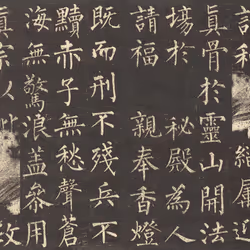 緇屬
真骨於靈山開法
場於 秘殿為人
請福 親奉香燈
既而刑不殘兵不
黷赤子無愁聲蒼
海無驚浪蓋參用
真宗以政